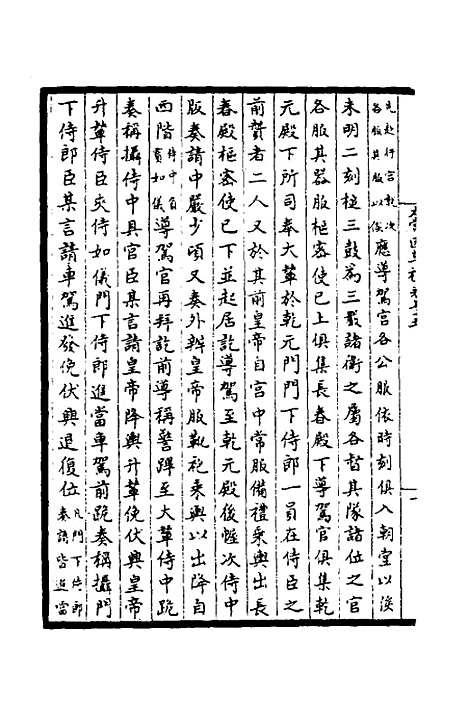 先赴行宫朝次
各服其服以俟應導駕官各公服依時刻俱入朝堂以俟
未明二刻搥三鼓為三嚴諸衛之屬各督其隊諸位之官
各服其器服樞密使已上俱集長春殿下導駕官俱集乾
元殿下所司奉大輦於乾元門門下侍郎一員在侍臣之
前賛者二人又於其前皇帝自宫中常服備禮乘輿出長
春殿樞密使已下並起居訖導駕至乾元殿後幄次侍中
版奏請中嚴少頃又奏外辦皇帝服靴袍乘輿以出降自
西階侍中負寳如儀導駕官再拜訖前導稱警蹕至大輦侍中跪
奏稱攝侍中具官臣某言請皇帝降輿升輦俛伏興皇帝
升輦侍臣夾侍如儀門下侍郎進當車駕前跪奏稱攝門
下侍郎臣某言請車駕進發俛伏興退復位凡門下侍郎奏請皆進當